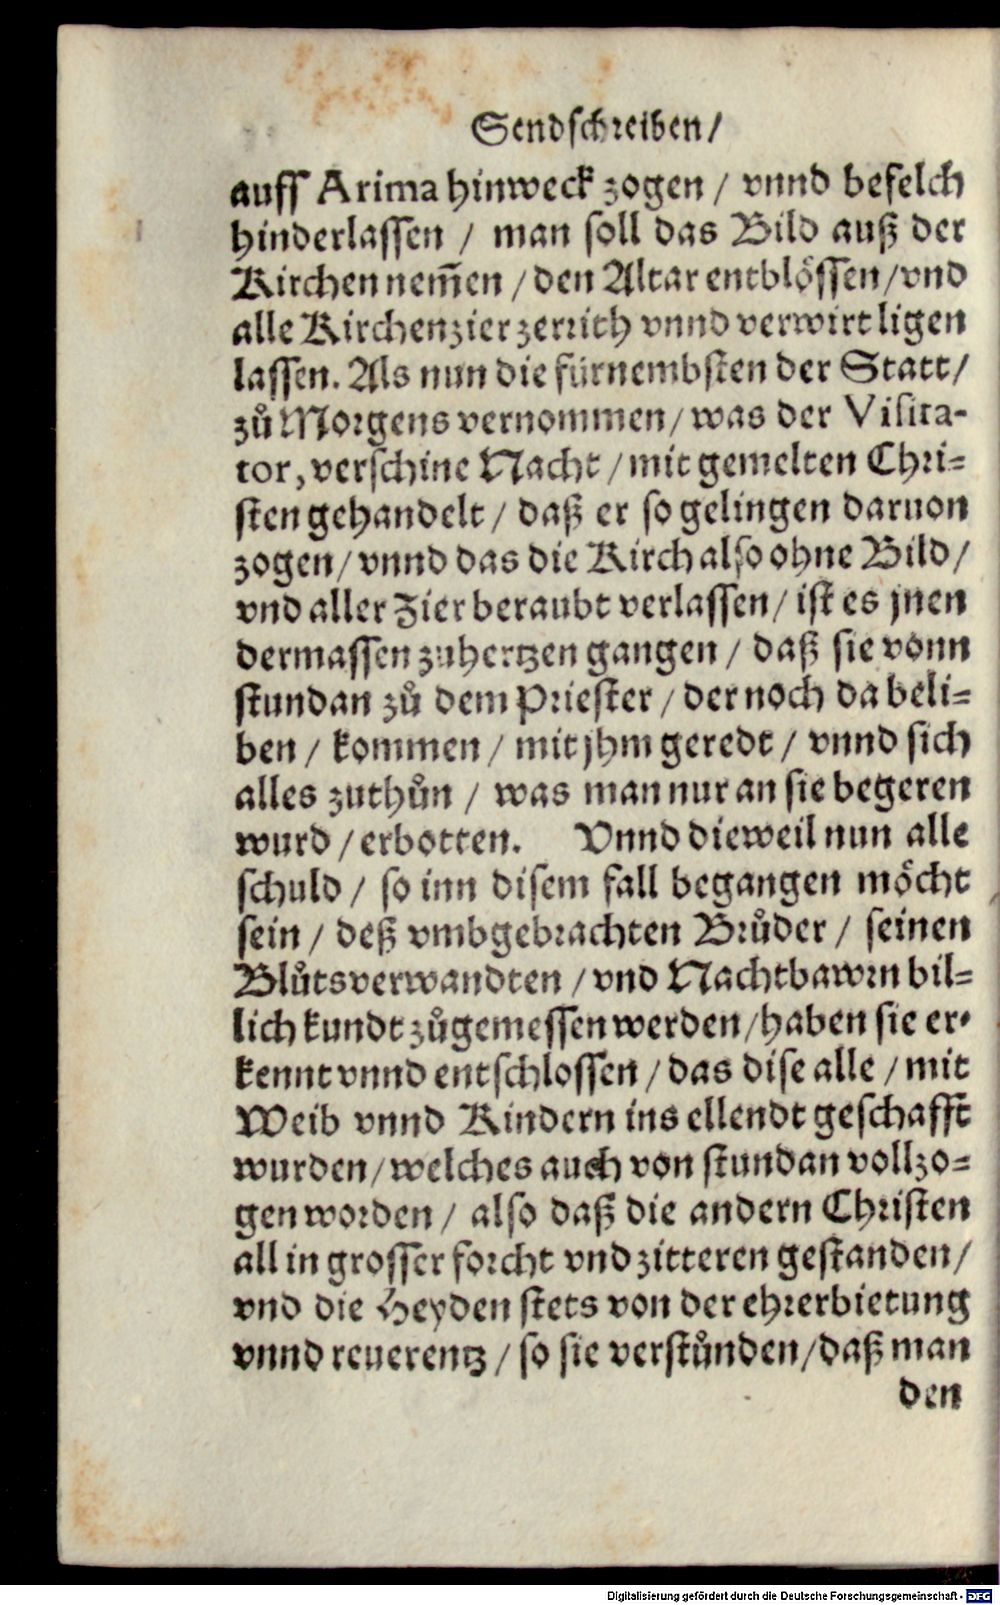 Sendschreiben/
auff Arima hinweck zogen / vnnd befelch
hinderlassen / man soll das Bild auß der
Kirchen nem̃en / den Altar entblössen/vnd
alle Kirchenzier zerrith vnnd verwirt ligen
lassen. Als nun die fürnembsten der Statt/
zů Morgens vernommen/was der Visita-
tor, verschine Nacht / mit gemelten Chri-
sten gehandelt / daß er so gelingen daruon
zogen/vnnd das die Kirch also ohne Bild/
vnd aller Zier beraubt verlassen/ist es jnen
dermassen zuhertzen gangen / daß sie vonn
stundan zů dem Priester / der noch da beli-
ben / kommen / mit jhm geredt / vnnd sich
alles zuthůn / was man nur an sie begeren
wurd / erbotten. Vnnd dieweil nun alle
schuld / so inn disem fall begangen möcht
sein / deß vmbgebrachten Brůder / seinen
Blůtsverwandten / vnd Nachtbawrn bil-
lich kundt zůgemessen werden/haben sie er-
kennt vnnd entschlossen / das dise alle / mit
Weib vnnd Kindern ins ellendt geschafft
wurden/welches auch von stundan vollzo-
gen worden / also daß die andern Christen
all in grosser forcht vnd zitteren gestanden/
vnd die Heyden stets von der ehrerbietung
vnnd reuerentz / so sie verstůnden/daß man
den
Digitalisierung gefördert durch die Deutsche Forschungsgemeinschaft - DFG